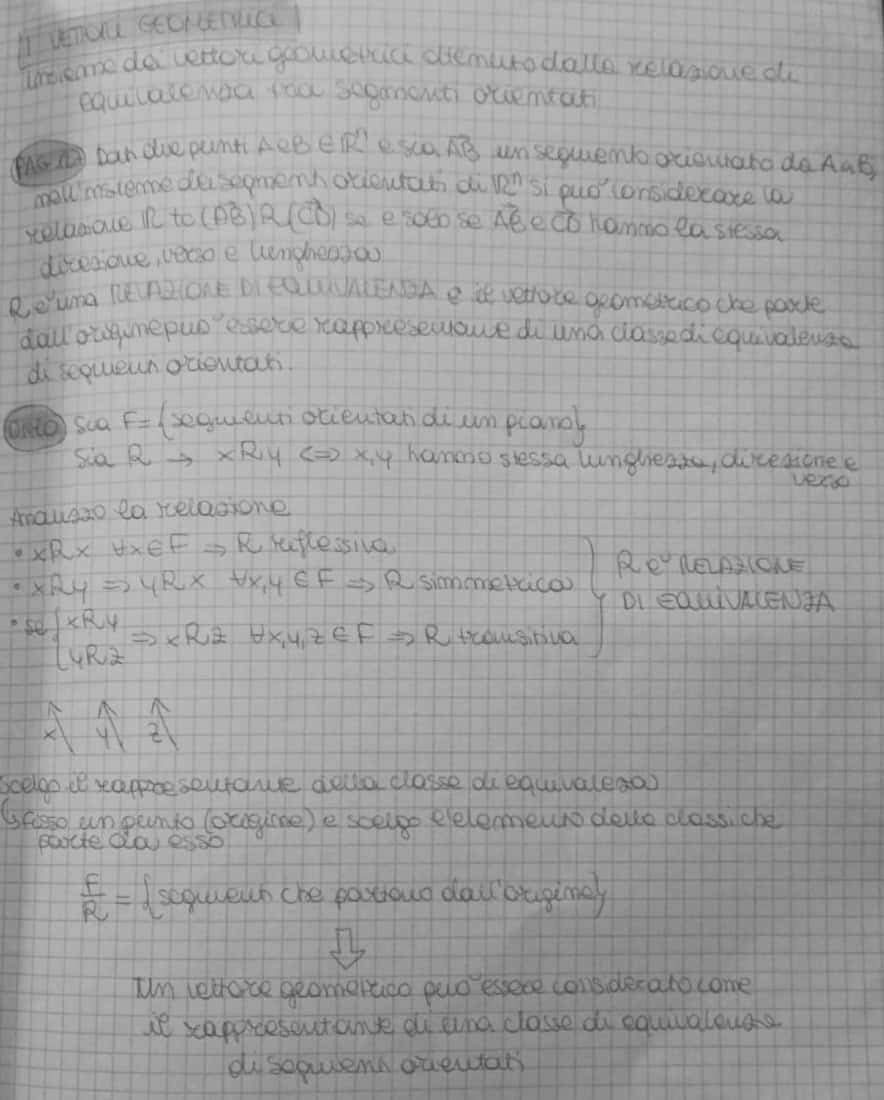 I VETTORI GEOMETRICI
insieme dei vettori geometrici ottenuto dalla relazione di
equivalenza tra segmenti orientati
Dati due punti A e B ∈ ℝⁿ e sia AB un segmento orientato da A a B,
nell'insieme dei segmenti orientati di ℝⁿ si può considerare la
relazione R tc (AB) R (CD) se e solo se AB e CD hanno la stessa
direzione, verso e lunghezza
R è una RELAZIONE DI EQUIVALENZA e il vettore geometrico che parte
dall'origine può essere rappresentante di una classe di equivalenza
di segmenti orientati.
Sia F = {segmenti orientati di un piano}
Sia R → xRy <=> x,y hanno stessa lunghezza, direzione e
verso
Analizzo la relazione
• xRx ∀x ∈ F => R riflessiva
• xRy => yRx ∀x,y ∈ F => R simmetrica } R è RELAZIONE
DI EQUIVALENZA
• se { xRy
yRz => xRz ∀x,y,z ∈ F => R transitiva
x y z
Scelgo il rappresentante della classe di equivalenza
↳ fisso un punto (origine) e scelgo l'elemento della classi che
parte da esso
F/R = {segmenti che partono dall'origine}
⇓
Un vettore geometrico può essere considerato come
il rappresentante di una classe di equivalenza
di segmenti orientati